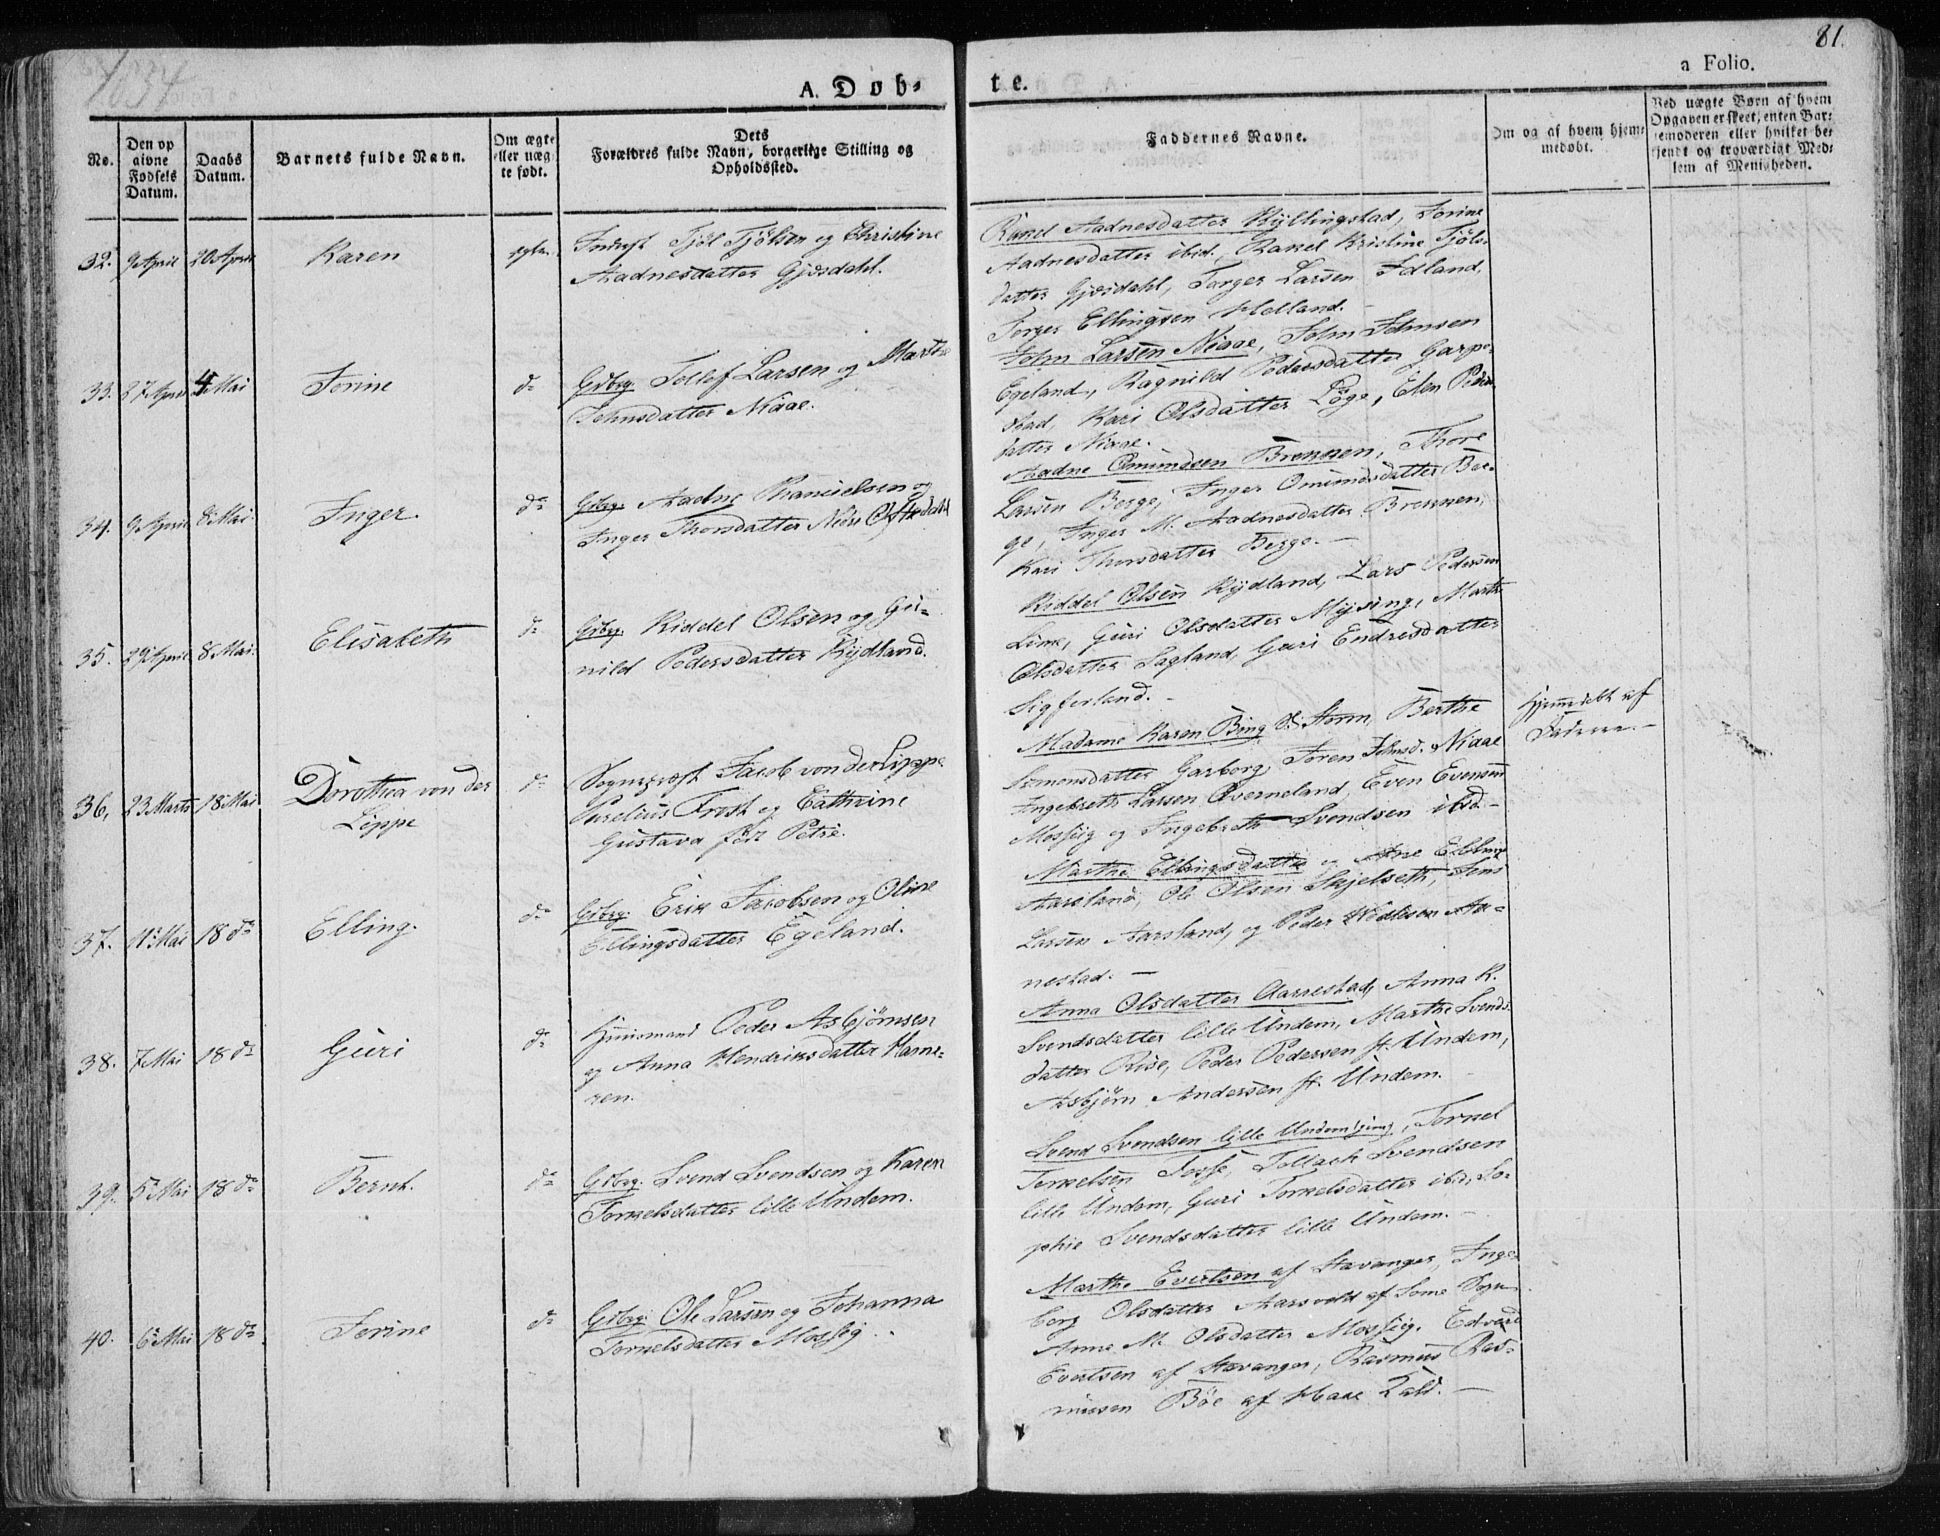 1834
81.
A. Døb-
te.
a Folio.
No.
Den op
givne
Fødsels
Datum.
Daabs
Datum.
Barnets fulde Navn.
Om ægte
eller uæg
te født.
Dets
Forældres fulde Navn, borgerlige Stilling og
Opholdssted.
Faddernes Navne.
Om og af hvem hjem-
medøbt.
Ved uægte Børn af hvem
Opgaven er skeet, enten Bar-
nemoderen eller hvilket be-
kjendt og troværdigt Med-
lem af Menigheden.
32. 9 April 20 April Karen ægte.
Tjøl Tjølsen og Christine
Aadnesdatter Gjesdahl.
Rakel Aadnesdatter Kyllingstad, Torine
Aadnesdatter ibid., Rakel Kristine Tjøls-
datter Gjesdahl, Torger Larsen Edland,
Torger Ellingsen Helland.
33. 27 April 4 Mai Torine do
Gdbrg. Tollef Larsen og Marthe
Johnsdatter Niaae.
John Larsen Niaae, John Johnsen
Egeland, Ragnild Pedersdatter Garpe-
stad, Kari Olsdatter Løge, Elen Peders
datter Niaae.
34. 9 April 8 Mai Inger. do
Gdbrg. Aadne Thanielsen og
Inger Thorsdatter Nedre Oftedahl
Aadne Omundsen Brekken, Thore
Larsen Berge, Inger Omundsdatter Ber-
ge, Inger M. Aadnesdatter Brekken,
Kari Thorsdatter Berge. —
35. 29 April 8 Mai. Elisabeth do
Gdbrg. Kiddel Olsen og Gu-
nild Pedersdatter Kydland.
Kiddel Olsen Kydland, Lars Pedersen
Lima, Guri Olsdatter Mysing, Marthe
Olsdatter Sagland, Guri Endresdatter
Sigferland. —
36. 23 Marts 18 Mai Dorothea von der
Lippe do
Sognepræst Jacob von der Lippe
Parelius Frost og Cathrine
Gustava før Petre.
Madame Karen Bing Storm, Berthe
Simonsdatter Garborg, Søren Johnsd. Niaae
Ingebreth Larsen Qverneland, Even Evensen
Mossige og Ingebreth Svendsen ibid —
Hjemdøbt af
Faderen. —
37. 11 Mai 18 do Elling. do
Gdbrg. Erik Jacobsen og Oline
Ellingsdatter Egeland.
Marthe Ellingsdatter og Ane Ellings
Aarsland, Ole Olsen Skjelseth, Jens
Larsen Aarsland, og Peder An-
nestad. —
38. 7 Mai 18 do Guri do
Huusmand Peder Asbjørnsen
og Anna Hendriksdatter Hame-
ren.
Anna Olsdatter Aarrestad, Anna K.
Svendsdatter lille Undem, Marthe Svends
datter Rise, Peder Pedersen st. Undem,
Asbjørn Andersen st. Undem.
39. 5 Mai 18 do Bernt. do
Gdbrg. Svend Svendsen og Karen
Torkelsdatter lille Undem.
Svend Svendsen lille Undem, Torkel
Torkelsen Tosse, Tollach Svendsen
lille Undem, Guri Torkelsdatter ibid, So-
phie Svendsdatter lille Undem. —
40. 6 Mai 18 do Torine do
Gdbrg. Ole Larsen og Johanna
Torkelsdatter Mossig.
Marthe Evertsen af Stavanger, Inge-
borg Olsdatter Aarsvold af Some Sogn
Anne M. Olsdatter Mossig. Edvard
Evertsen af Stavanger, Rasmus Ras-
musen Bøe af Haae Kald. —